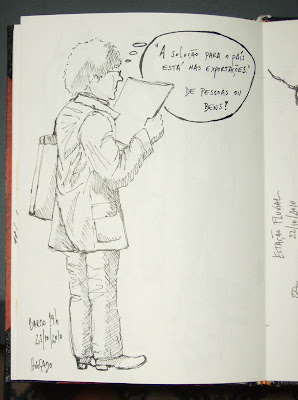 "A SOLUÇÃO PARA O PAÍS
ESTÁ NAS EXPORTAÇÕES."
DE PESSOAS OU
BENS?
22/10/2010
ESTAÇÃO FLUVIAL
22/10/2010